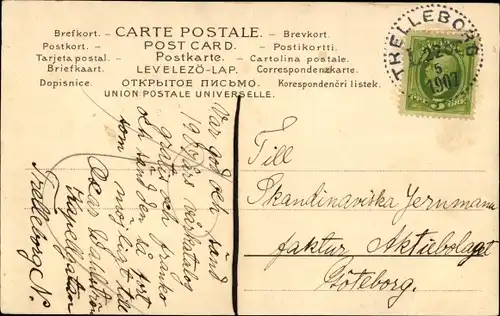 Brefkort. - CARTE POSTALE. - Brevkort.
Postkort. - POST CARD. - Postikortti.
Tarjeta postal. - Postkarte. - Cartolina postale.
Briefkaart. - LEVELEZÖ-LAP. - Correspondenzkarte.
Dopisnice. - ОТКРЫТОЕ ПИСЬМО. - Korespondenčri listek.
UNION POSTALE UNIVERSELLE.
TRELLEBORG
5
1907
5 ÖRE
Var god och sänd
gratis och franko
och sänd den så fort
som möjligt till
Oscar Dahlström
Kapellgatan
Trelleborg N:
Till
Skandinaviska Jernmanu
faktur Aktiebolaget
Göteborg.